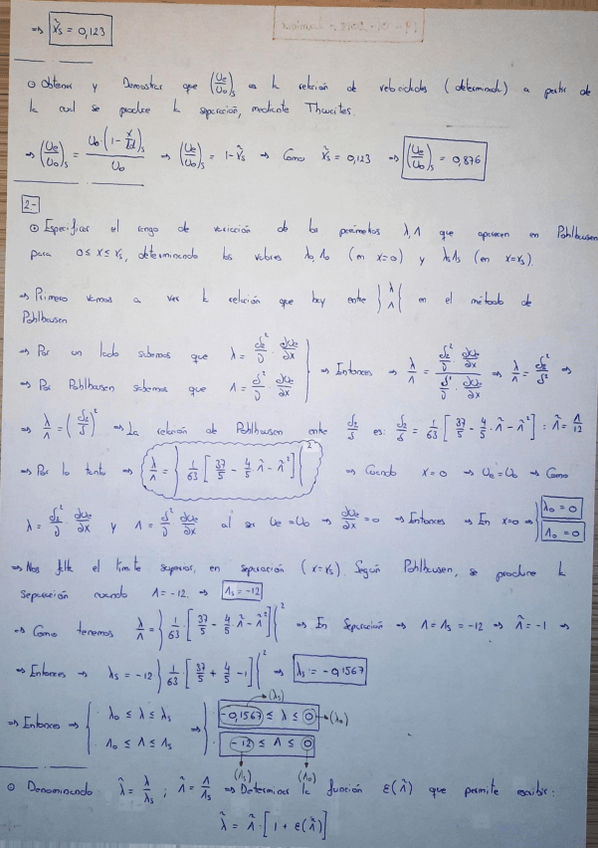 ⇒ x̃s = 0,123
⊙ Obtener y Demostrar que (Ue/Uo)s es la relación de velocidades (determinada) a partir de
la cual se produce la separación, mediante Thwaites.
⇒ (Ue/Uo)s = Uo·(1 - x/Ld)s / Uo ⇒ (Ue/Uo)s = 1 - x̃s ⇒ Como x̃s = 0,123 ⇒ (Ue/Uo)s = 0,876
2.-
⊙ Especificar el rango de variación de los parámetros λ, Λ que aparecen en Pohlhausen
para 0 ≤ x ≤ xs, determinando los valores λo, Λo (en x=0) y λs Λs (en x=xs).
⇒ Primero vamos a ver la relación que hay entre } λ Λ { en el método de
Pohlhausen
⇒ Por un lado sabemos que λ = δ2²/ν · ∂Ue/∂x
⇒ Por Pohlhausen sabemos que Λ = δ²/ν · ∂Ue/∂x } ⇒ Entonces ⇒ λ/Λ = (δ2²/ν ∂Ue/∂x)/(δ²/ν · ∂Ue/∂x) ⇒ λ/Λ = δ2²/δ² ⇒
⇒ λ/Λ = (δ2/δ)² ⇒ La relación de Pohlhausen entre δ2/δ es: δ2/δ = 1/63 [37/5 - 4/5 · Λ̂ - Λ̂²] : Λ̂ = Λ/12
⇒ Por lo tanto ⇒ λ/Λ = } 1/63 [37/5 - 4/5 · Λ̂ - Λ̂²] {² ⇒ Cuando x=0 ⇒ Ue=Uo ⇒ Como
λ = δ2²/ν ∂Ue/∂x y Λ = δ²/ν ∂Ue/∂x al ser Ue=Uo ⇒ ∂Ue/∂x = 0 ⇒ Entonces ⇒ En x=0 ⇒ { λo = 0 Λo = 0
⇒ Nos falta el límite superior, en separación (x=xs). Según Pohlhausen, se produce la
separación cuando Λ = -12. ⇒ Λs = -12
⇒ Como tenemos λ/Λ = } 1/63 · [37/5 - 4/5 Λ̂ - Λ̂²] {² ⇒ En Separación ⇒ Λ = Λs = -12 ⇒ Λ̂ = -1 ⇒
⇒ Entonces ⇒ λs = -12 } 1/63 [37/5 + 4/5 - 1] {² ⇒ λs = -0,1567
⇒ Entonces ⇒ { λo ≤ λ ≤ λs ⇒ { -0,1567 ≤ λ ≤ 0 (λs) (λo)
Λo ≤ Λ ≤ Λs -12 ≤ Λ ≤ 0
(Λs) (Λo)
⊙ Denominando λ̃ = λ/λs ; Λ̃ = Λ/Λs ⇒ Determinar la función ε(Λ̃) que permite escribir:
λ̃ = Λ̃ · [1 + ε(Λ̃)]